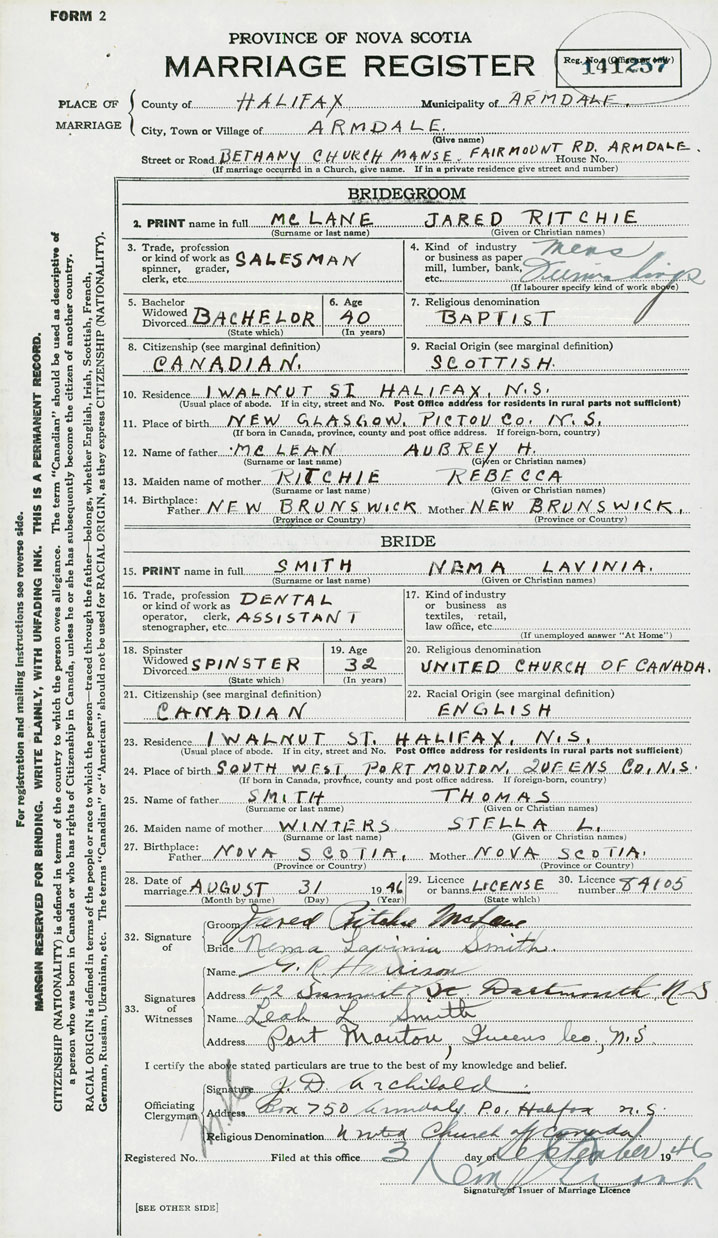 FORM 2
PROVINCE OF NOVA SCOTIA
MARRIAGE REGISTER
Reg. No. (Office use only)
141257
PLACE OF MARRIAGE
County of HALIFAX Municipality of ARMDALE.
City, Town or Village of ARMDALE.
(Give name)
Street or Road BETHANY CHURCH MANSE. FAIRMOUNT RD. ARMDALE. House No.
(If marriage occurred in a Church, give name. If in a private residence give street and number)
BRIDEGROOM
2. PRINT name in full MCLANE JARED RITCHIE
(Surname or last name) (Given or Christian names)
3. Trade, profession or kind of work as spinner, grader, clerk, etc. SALESMAN
4. Kind of industry or business as paper mill, lumber, bank, etc. mens
(If labourer specify kind of work above)
5. Bachelor Widowed Divorced BACHELOR
(State which)
6. Age 40
(In years)
7. Religious denomination
BAPTIST
8. Citizenship (see marginal definition)
CANADIAN.
9. Racial Origin (see marginal definition)
SCOTTISH.
10. Residence 1 WALNUT ST HALIFAX, N.S.
(Usual place of abode. If in city, street and No. Post Office address for residents in rural parts not sufficient)
11. Place of birth NEW GLASGOW. PICTOU CO. N.S.
(If born in Canada, province, county and post office address. If foreign-born, country)
12. Name of father MCLEAN AUBREY H.
(Surname or last name) (Given or Christian names)
13. Maiden name of mother RITCHIE REBECCA
(Surname or last name) (Given or Christian names)
14. Birthplace:
Father NEW BRUNSWICK Mother NEW BRUNSWICK.
(Province or Country) (Province or Country)
BRIDE
15. PRINT name in full SMITH NEMA LAVINIA.
(Surname or last name) (Given or Christian names)
16. Trade, profession or kind of work as operator, clerk, stenographer, etc DENTAL ASSISTANT
17. Kind of industry or business as textiles, retail, law office, etc.
(If unemployed answer "At Home")
18. Spinster Widowed Divorced SPINSTER
(State which)
19. Age 32
(In years)
20. Religious denomination
UNITED CHURCH OF CANADA.
21. Citizenship (see marginal definition)
CANADIAN
22. Racial Origin (see marginal definition)
ENGLISH
23. Residence 1 WALNUT ST. HALIFAX, N.S.
(Usual place of abode. If in city, street and No. Post Office address for residents in rural parts not sufficient)
24. Place of birth SOUTH WEST, PORT MOUTON, QUEENS CO, N.S.
(If born in Canada, province, county and post office address. If foreign-born, country)
25. Name of father SMITH THOMAS
(Surname or last name) (Given or Christian names)
26. Maiden name of mother WINTERS STELLA L.
(Surname or last name) (Given or Christian names)
27. Birthplace:
Father NOVA SCOTIA, Mother NOVA SCOTIA.
(Province or Country) (Province or Country)
28. Date of marriage AUGUST 31 1946
(Month by name) (Day) (Year)
29. Licence or banns LICENSE
(State which)
30. Licence number 84105
32. Signature of
Groom Jared Ritchie McLane
Bride Nema Lavinia Smith.
33. Signatures of Witnesses
Name G. R. Harrison
Address 62 Summit St Dartmouth, N S
Name Leah L. Smith
Address Port Mouton, Queens Co., N.S.
I certify the above stated particulars are true to the best of my knowledge and belief.
Officiating Clergyman
Signature J. D. Archibald
Address Box 750 Armdale P.O. Halifax N.S.
Religious Denomination United Church of Canada
Registered No. Filed at this office 3 day of September 1946
Signature of Issuer of Marriage Licence
[SEE OTHER SIDE]
For registration and mailing instructions see reverse side.
MARGIN RESERVED FOR BINDING. WRITE PLAINLY, WITH UNFADING INK. THIS IS A PERMANENT RECORD.
CITIZENSHIP (NATIONALITY) is defined in terms of the country to which the person owes allegiance. The term "Canadian" should be used as descriptive of
a person who was born in Canada or who has rights of Citizenship in Canada, unless he or she has subsequently become the citizen of another country.
RACIAL ORIGIN is defined in terms of the people or race to which the person—traced through the father—belongs, whether English, Irish, Scottish, French,
German, Russian, Ukrainian, etc. The terms "Canadian" or "American" should not be used for RACIAL ORIGIN, as they express CITIZENSHIP (NATIONALITY).